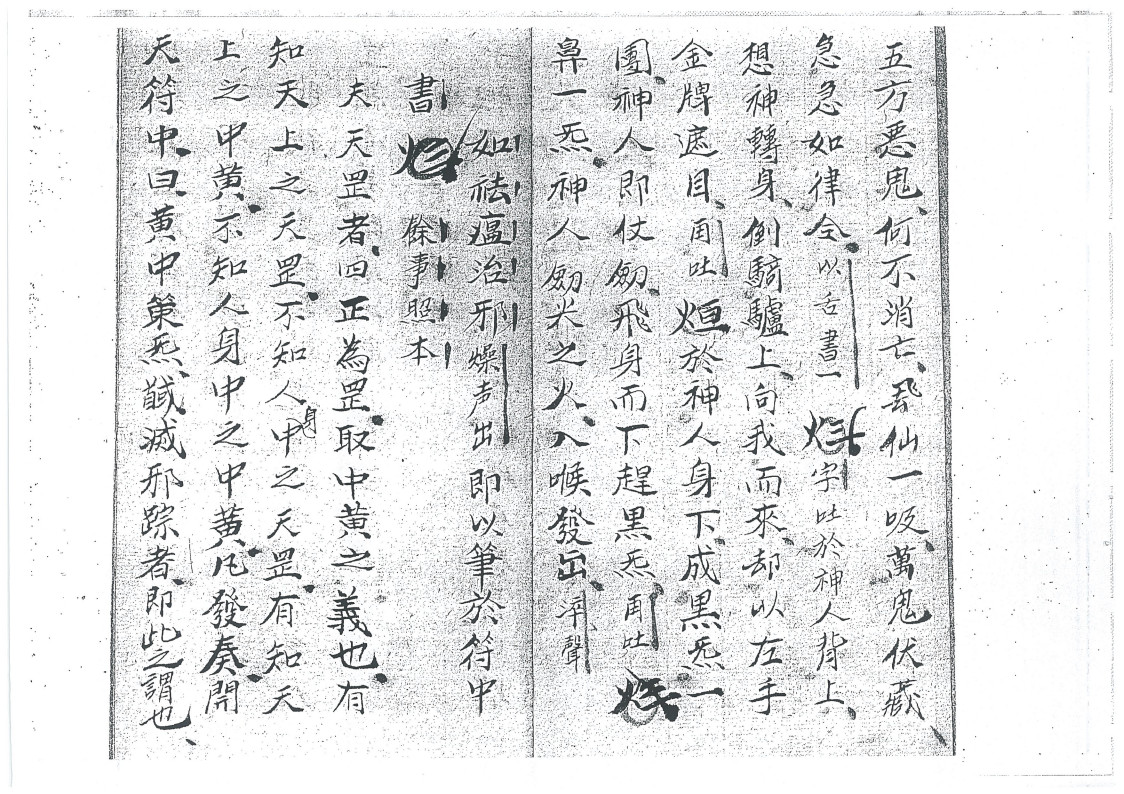 五方悪鬼、何不消亡、飛仙一吸、萬鬼伏藏、
急急如律令、以舌書一 字吐於神人背上、
想神轉身、倒騎驢上、向我而來、却以左手
金牌遮目、再吐烜於神人身下、成黑炁一
團、神人即仗劔、飛身而下、趕黑炁、再吐
鼻一炁、神人劔尖之火、入喉發出、平聲
如祛瘟治邪燥声出即以筆於符中
書 餘事照本
夫天罡者、四正為罡、取中黄之義也、有
知天上之天罡、不知人身中之天罡、有知天
上之中黄、不知人身中之中黄、凡發奏、開
天符中、曰、黄中策炁、馘滅邪踪者、即此之謂也、